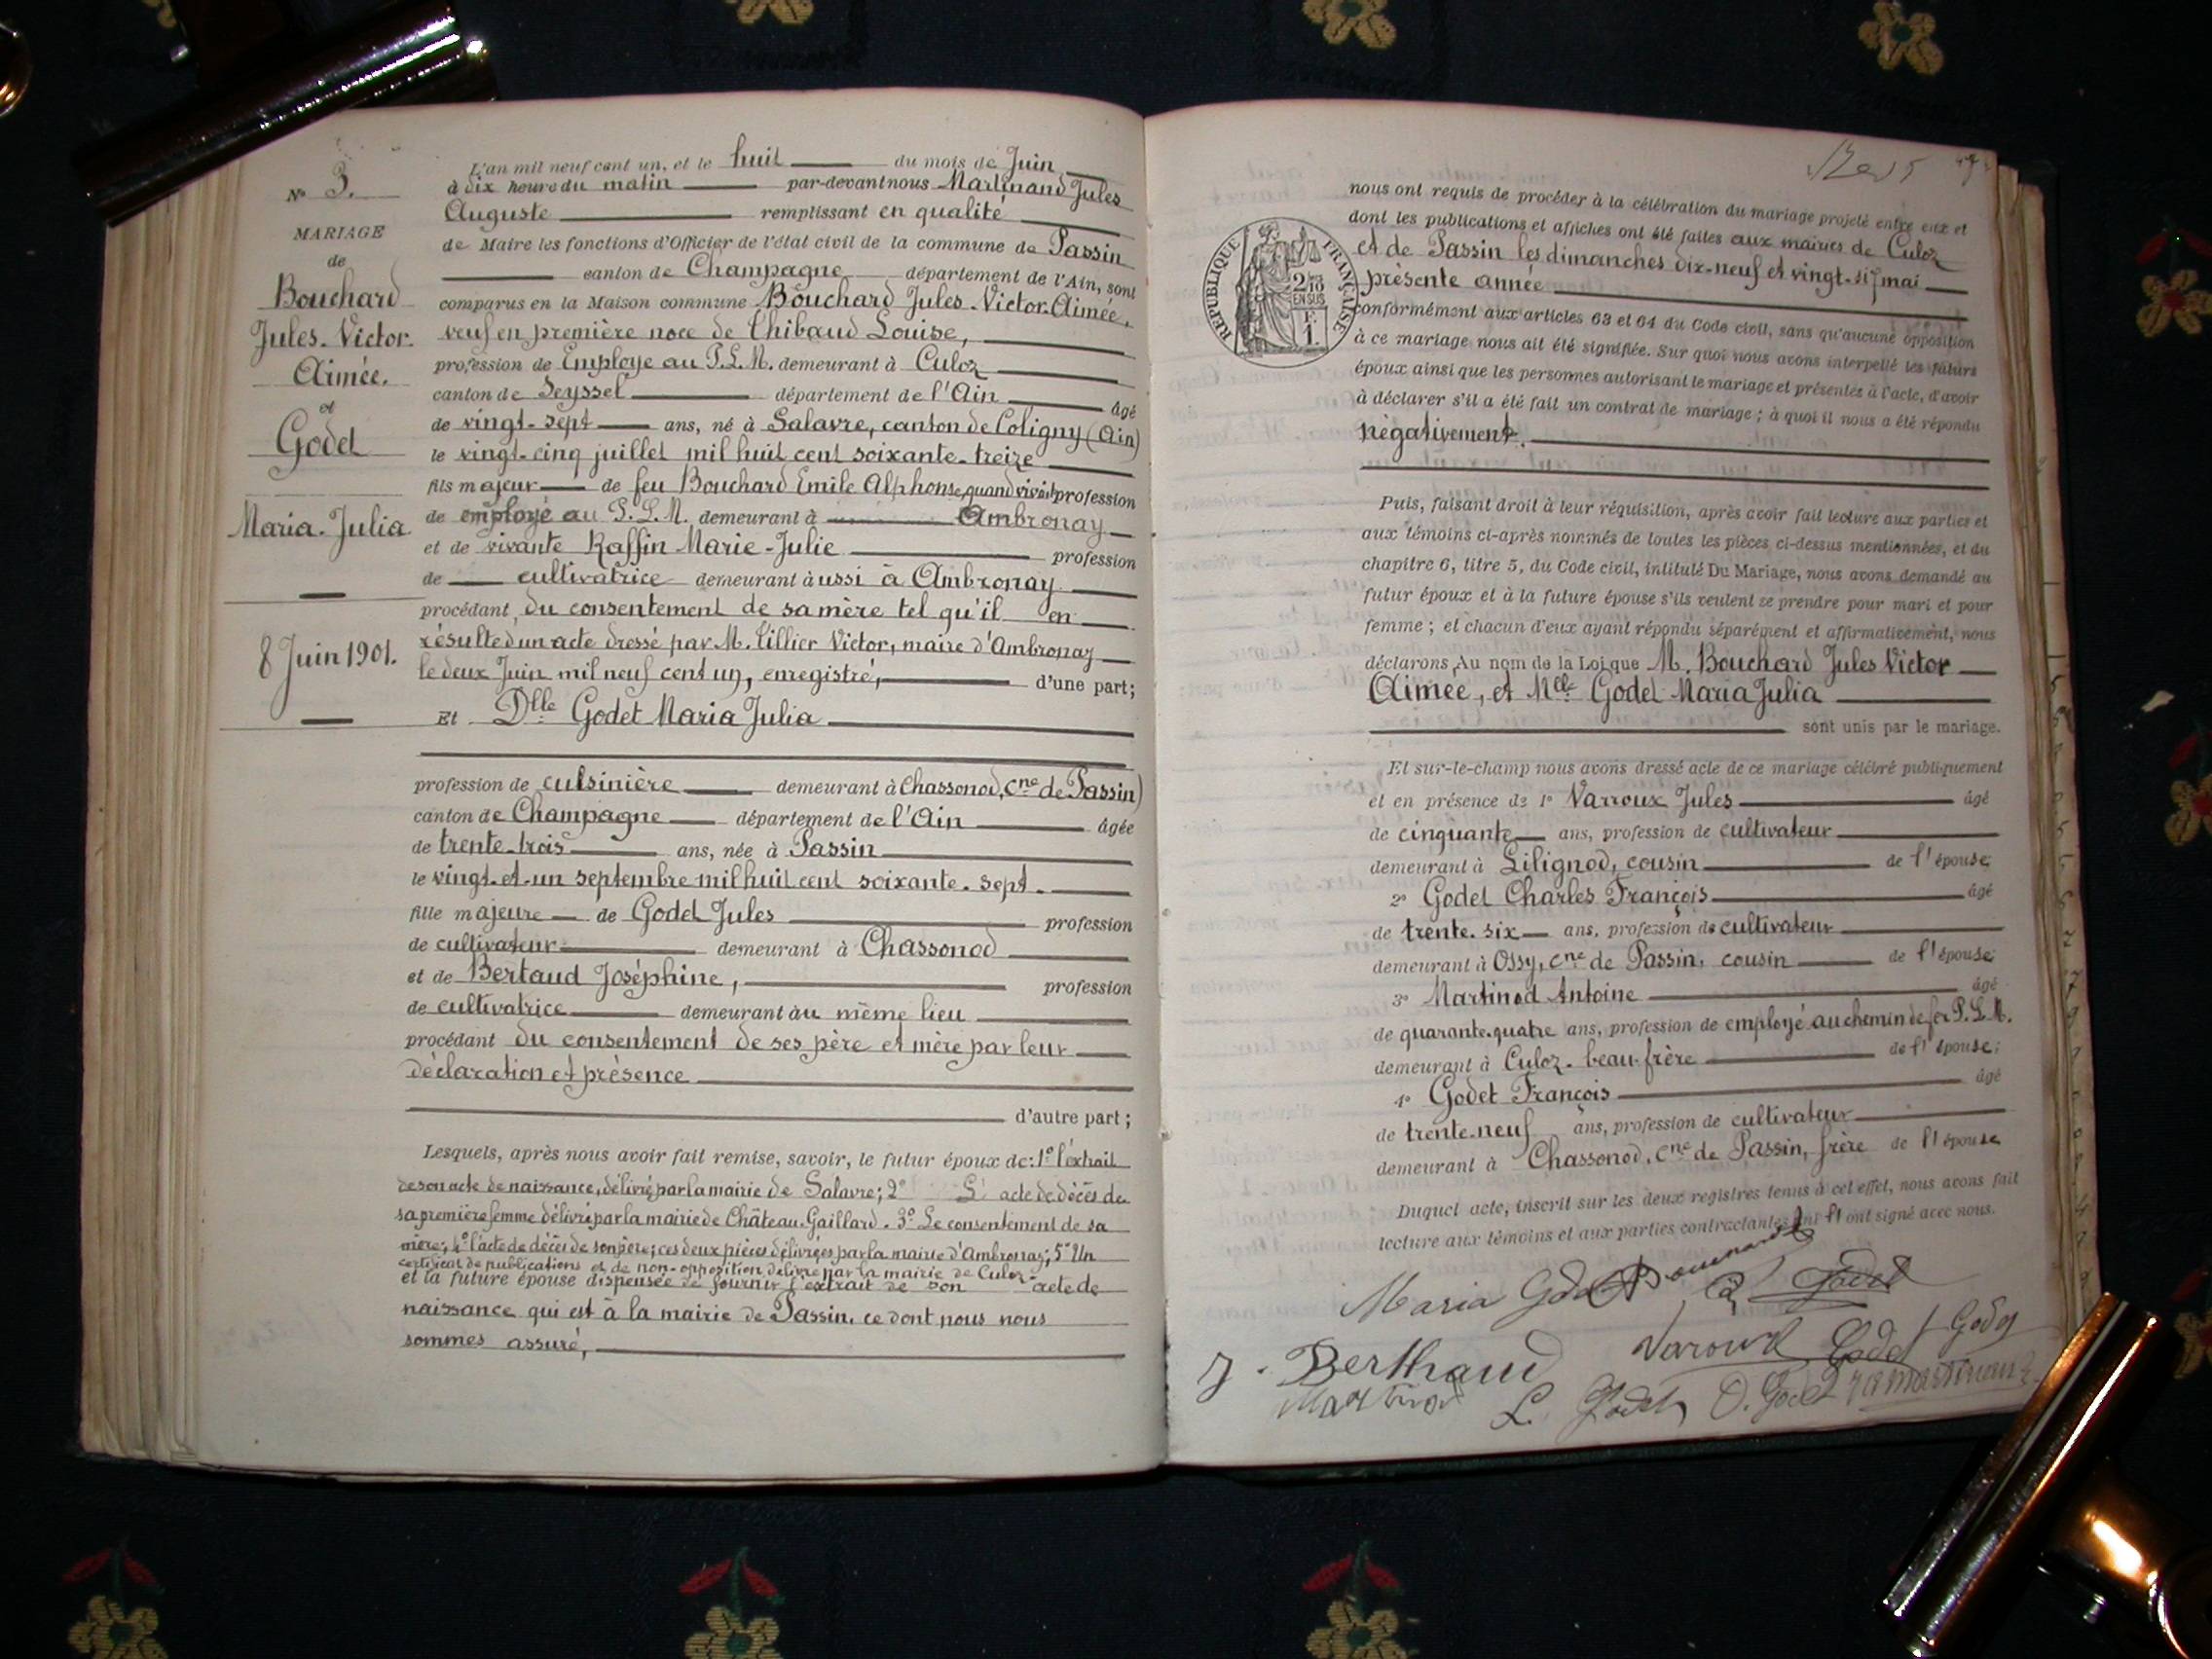 N° 3.
MARIAGE
de
Bouchard
Jules. Victor.
Aimée.
et
Godet
Maria. Julia
8 Juin 1901.
L'an mil neuf cent un, et le huit du mois de Juin
à dix heure du matin par-devant nous Martinand Jules
Auguste remplissant en qualité
de Maire les fonctions d'Officier de l'état civil de la commune de Passin
canton de Champagne département de l'Ain, sont
comparus en la Maison commune Bouchard Jules. Victor. Aimée,
veuf en première noce de Thibaud Louise,
profession de Employe au P.L.M. demeurant à Culoz
canton de Seyssel département de l'Ain âgé
de vingt-sept ans, né à Salavre, canton de Coligny (Ain)
le vingt-cinq juillet mil huit cent soixante-treize
fils majeur de feu Bouchard Emile Alphonse, quand vivait profession
de employé au P.L.M. demeurant à Ambronay
et de vivante Raffin Marie-Julie profession
de cultivatrice demeurant aussi à Ambronay
procédant du consentement de sa mère tel qu'il en
résulte d'un acte dressé par M. Tillier Victor, maire d'Ambronay
le deux Juin mil neuf cent un, enregistré, d'une part;
Et Dlle Godet Maria Julia
profession de cuisinière demeurant à Chassonod, Cne de Passin)
canton de Champagne département de l'Ain âgée
de trente-trois ans, née à Passin
le vingt-et-un septembre mil huit cent soixante-sept.
fille majeure de Godet Jules profession
de cultivateur demeurant à Chassonod
et de Bertaud Joséphine, profession
de cultivatrice demeurant au même lieu
procédant du consentement de ses père et mère par leur
déclaration et présence
d'autre part;
Lesquels, après nous avoir fait remise, savoir, le futur époux de: 1° l'extrait
de son acte de naissance, délivré par la mairie de Salavre; 2° L' acte de décès de
sa première femme délivré par la mairie de Château-Gaillard. 3° Le consentement de sa
mère; 4° l'acte de décès de son père; ces deux pièces délivrées par la mairie d'Ambronay; 5° Un
certificat de publications et de non-opposition délivré par la mairie de Culoz
et la future épouse dispensée de fournir l'extrait de son acte de
naissance qui est à la mairie de Passin, ce dont nous nous
sommes assuré,
nous ont requis de procéder à la célébration du mariage projeté entre eux et
dont les publications et affiches ont été faites aux mairies de Culoz
et de Passin les dimanches dix-neuf et vingt-six mai
présente année
RÉPUBLIQUE FRANÇAISE
2/10
EN SUS
F.
1.
conformément aux articles 63 et 64 du Code civil, sans qu'aucune opposition
à ce mariage nous ait été signifiée. Sur quoi nous avons interpellé les futurs
époux ainsi que les personnes autorisant le mariage et présentes à l'acte, d'avoir
à déclarer s'il a été fait un contrat de mariage; à quoi il nous a été répondu
négativement.
Puis, faisant droit à leur réquisition, après avoir fait lecture aux parties et
aux témoins ci-après nommés de toutes les pièces ci-dessus mentionnées, et du
chapitre 6, titre 5, du Code civil, intitulé Du Mariage, nous avons demandé au
futur époux et à la future épouse s'ils veulent se prendre pour mari et pour
femme; et chacun d'eux ayant répondu séparément et affirmativement, nous
déclarons Au nom de la Loi que M. Bouchard Jules Victor
Aimée, et Mlle Godet Maria Julia
sont unis par le mariage.
Et sur-le-champ nous avons dressé acte de ce mariage célébré publiquement
et en présence de 1° Varroux Jules âgé
de cinquante ans, profession de cultivateur
demeurant à Lilignod, cousin de l'épouse;
2° Godet Charles François âgé
de trente-six ans, profession de cultivateur
demeurant à Ossy, cne de Passin, cousin de l'épouse;
3° Martinod Antoine âgé
de quarante-quatre ans, profession de employé au chemin de fer P.L.M.
demeurant à Culoz. beau-frère de l'épouse;
4° Godet François âgé
de trente-neuf ans, profession de cultivateur
demeurant à Chassonod, Cne de Passin, frère de l'épouse
Duquel acte, inscrit sur les deux registres tenus à cet effet, nous avons fait
lecture aux témoins et aux parties contractantes qui ont signé avec nous.
Maria Godet Bouchard Godet
J. Berthaud Varroux Godet f Godet
Martinod L. Godet O. Godet Martinand